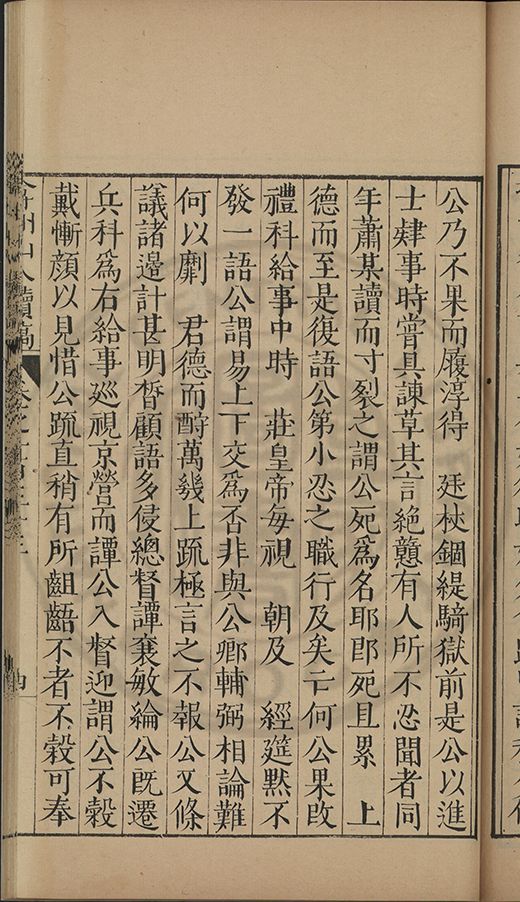 公乃不果而履淳得　廷杖錮緹騎獄前是公以進
士肄事時嘗具諫草其言絕戇有人所不忍聞者同
年蕭某讀而寸裂之謂公死爲名耶卽死且累　上
德而至是復語公第小忍之職行及矣亡何公果改
禮科給事中時　莊皇帝每視　朝及　經筵默不
發一語公謂易上下交爲否非與公卿輔弼相論難
何以劘　君德而酧萬幾上疏極言之不報公又條
議諸邊計甚明晳顧語多侵總督譚襄敏綸公旣遷
兵科爲右給事廵視京營而譚公入督迎謂公不榖
戴慚顔以見惜公疏直稍有所齟齬不者不榖可奉